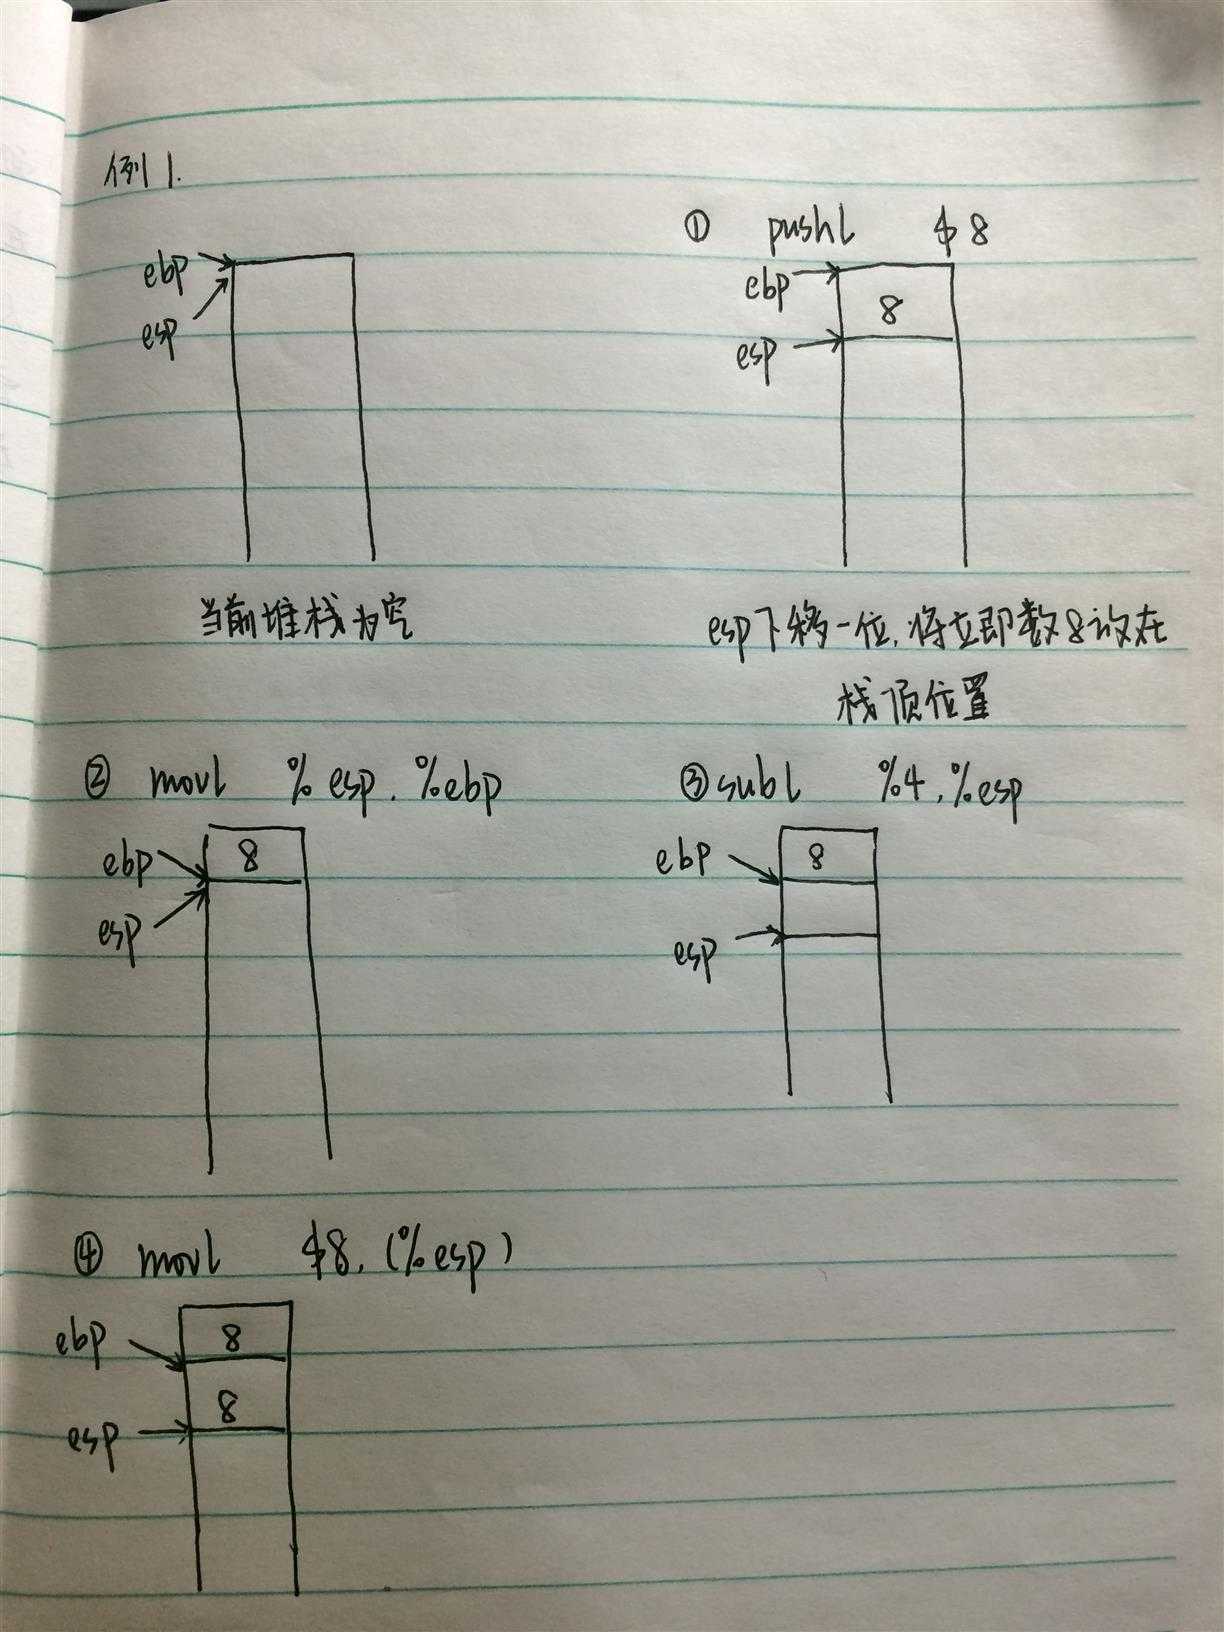 例1.
ebp
esp
当前堆栈为空
① pushl $8
ebp
8
esp
esp下移一位,将立即数8放在
栈顶位置
② movl %esp, %ebp
ebp
8
esp
③ subl %4, %esp
ebp
8
esp
④ movl $8, (%esp)
ebp
8
8
esp